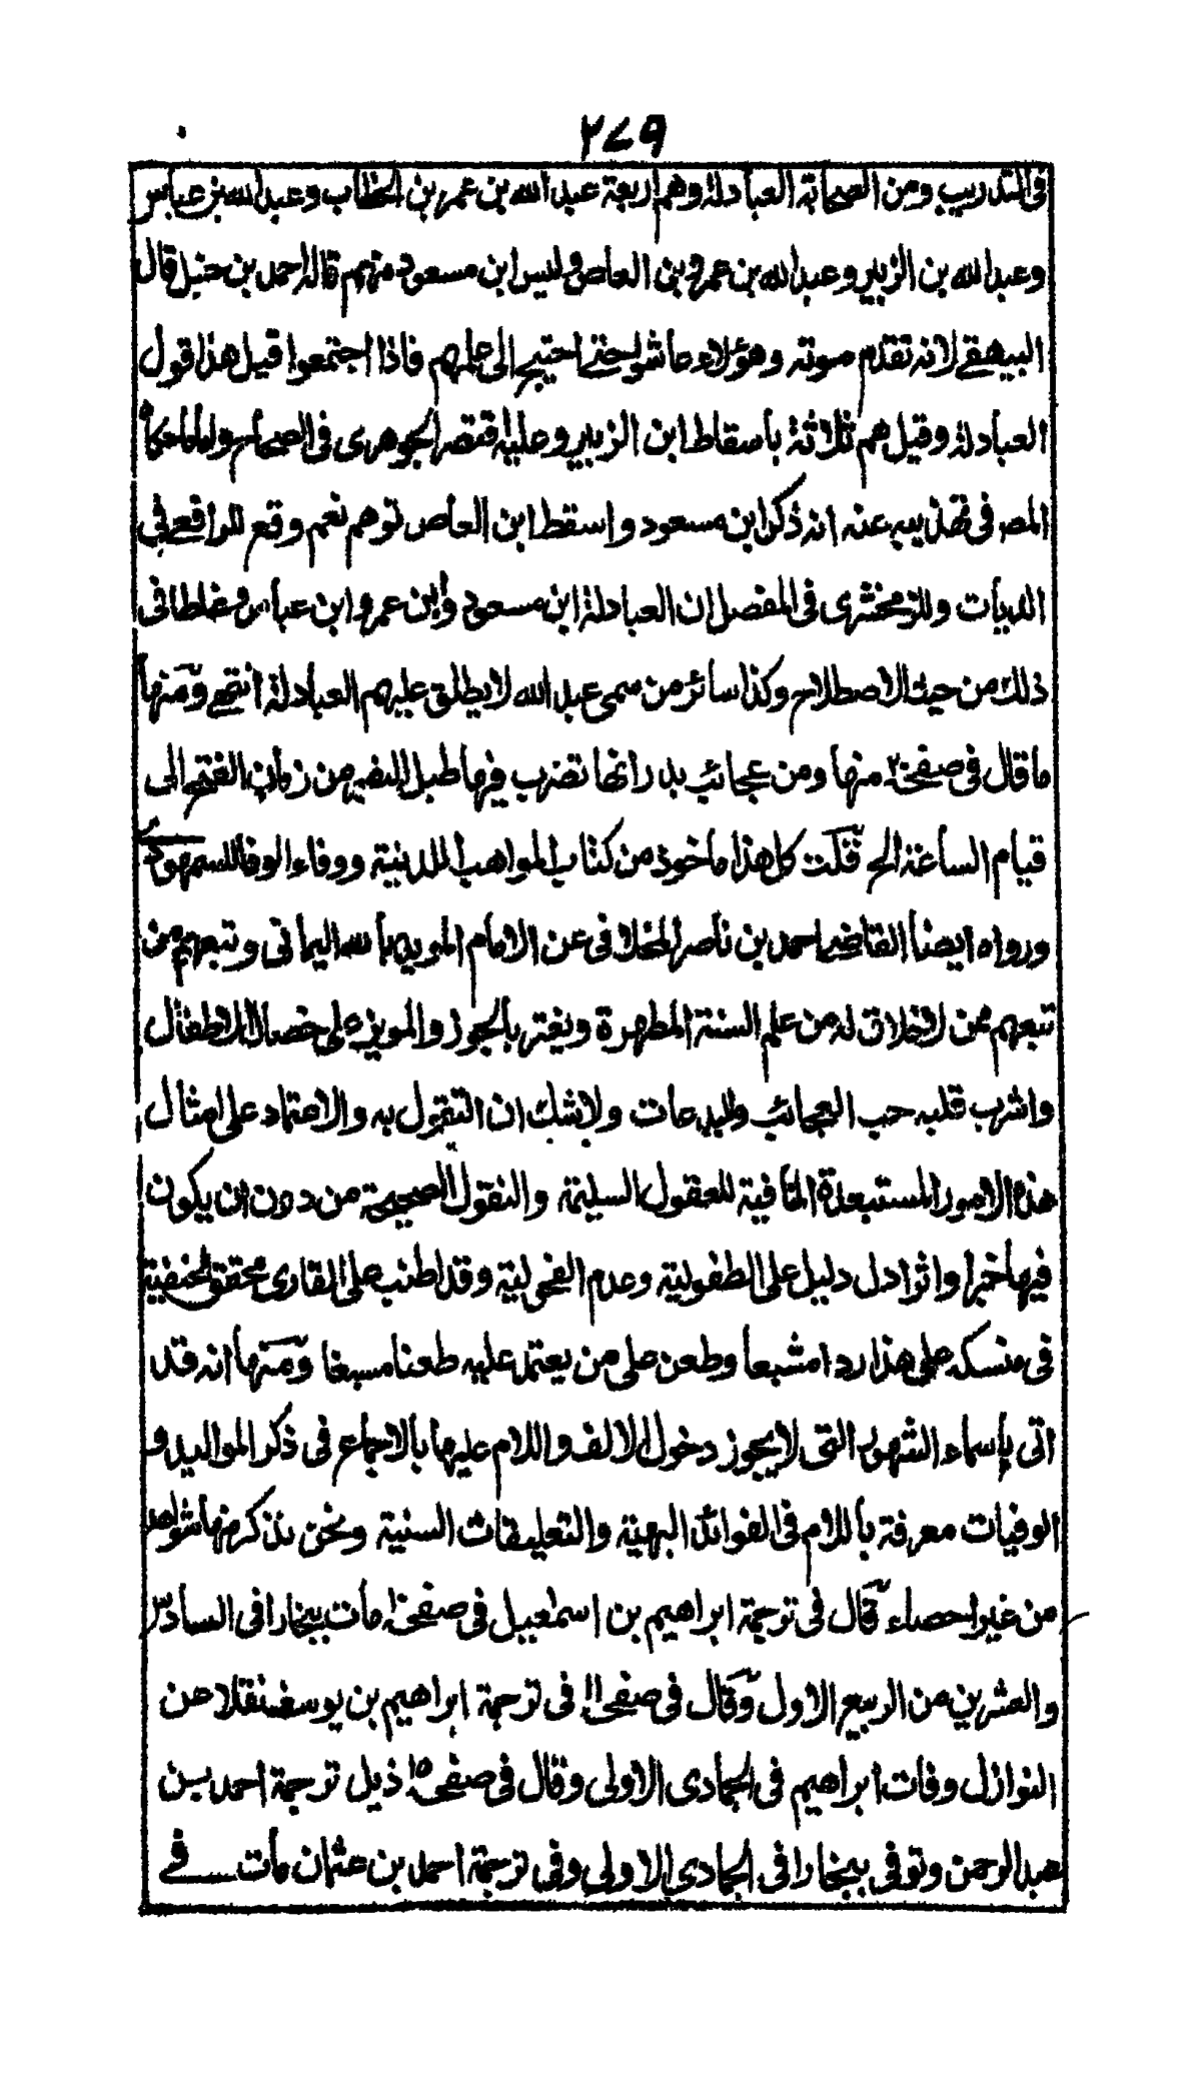 ٢٧٩
في التدريب ومن الصحابة العبادلة وهم اربعة عبد الله بن عمر بن الخطاب وعبد الله بن عباس
وعبد الله بن الزبير وعبد الله بن عمرو بن العاص وليس ابن مسعود منهم قاله احمد بن حنبل قال
البيهقي لانه تقدم موته وهؤلاء عاشوا حتى احتيج الى علمهم فاذا اجتمعوا قيل هذا قول
العبادلة وقيل هم ثلاثة باسقاط ابن الزبير وعليه اقتصر الجوهري في الصحاح واما ما حكاه
المص في تهذيبه عنه انه ذكر ابن مسعود واسقط ابن العاص توهم نعم وقع للرافعي في
الديات وللزمخشري في المفصل ان العبادلة ابن مسعود وابن عمر وابن عباس وغلطا في
ذلك من حيث الاصطلاح وكذا سائر من سمى عبد الله لا يطلق عليهم العبادلة انتهى ومنها
ما قال في صفحة ٢ منها ومن عجائب بدر انها تضرب فيها طبل النصر من زمان الفتح الى
قيام الساعة الخ قلت كل هذا ماخوذ من كتاب المواهب اللدنية ووفاء الوفا للسمهودي
ورواه ايضا القاضي احمد بن ناصر المخلافي عن الامام المويد بالله اليماني وتبعهم من
تبعهم ممن لا خلاق له من علم السنة المطهرة ويغتر بالجوز والمويز على خصال الاطفال
واشرب قلبه حب العجائب والبدعات ولا شك ان التقول به والاعتماد على امثال
هذه الامور المستبعدة المنافية للعقول السليمة والنقول الصحيحة من دون ان يكون
فيها خبر او اثر ادل دليل على الطفولية وعدم الفحولية وقد اطنب على القاري محقق الحنفية
في منسكه على هذا رد امشبعا وطعن على من يعتمد عليه طعنا مسبغا ومنها انه قد
اتى باسماء الشهور التي لا يجوز دخول الالف واللام عليها بالاجماع في ذكر المواليد و
الوفيات معرفة باللام في الفوائد البهية والتعليقات السنية ونحن نذكر منها شواهد
من غير احصاء قال في ترجمة ابراهيم بن اسمعيل في صفحة مات ببخارا في السادس
والعشرين من الربيع الاول وقال في صفحة ١١ في ترجمة ابراهيم بن يوسف نقلا عن
النوازل وفات ابراهيم في الجمادى الاولى وقال في صفحة ١٥ ذيل ترجمة احمد بن
عبد الرحمن وتوفي ببخارا في الجمادى الاولى وفي ترجمة احمد بن عثمان مات في